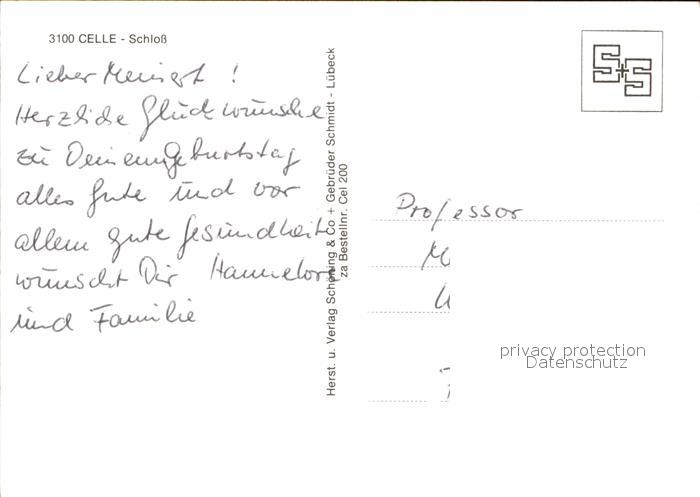 3100 CELLE - Schloß
Lieber Meinert !
Herzliche Glückwünsche
zu Deinem Geburtstag
alles Gute und vor
allem gute Gesundheit
wünscht Dir Hannelore
und Familie
Herst. u. Verlag Schöning & Co + Gebrüder Schmidt - Lübeck
za Bestellnr. Cel 200
S+S
Professor
privacy protection
Datenschutz